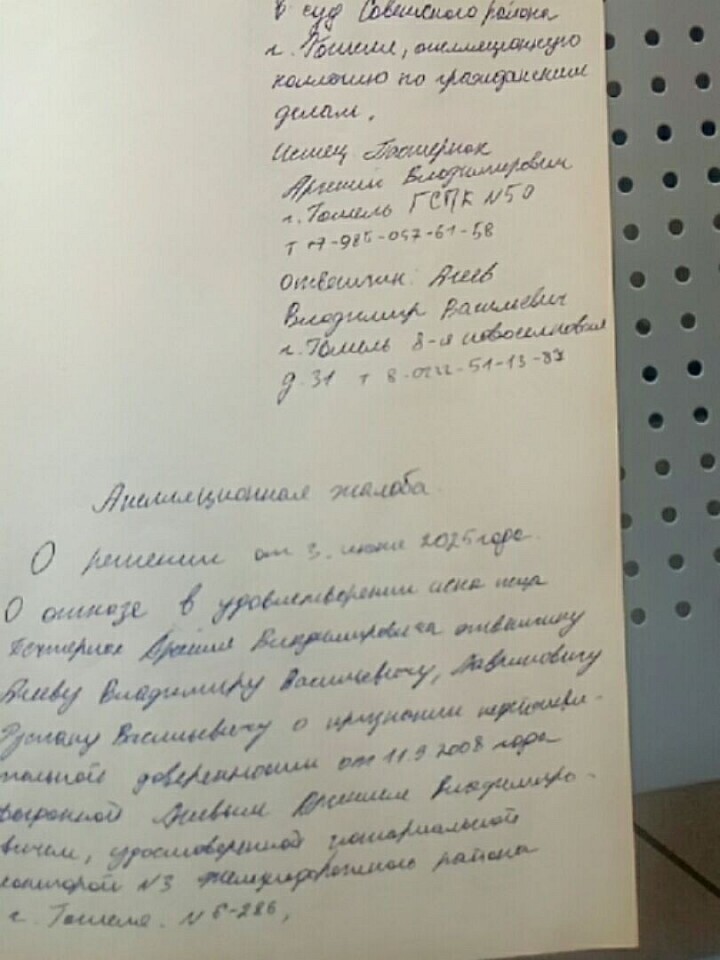 в суд Советского района
г. Гомеля, апелляционную
коллегию по гражданским
делам.
Истец
Владимирович
г. Гомель ГСПК N50
т +7-985-057-61-58
Ответчик: Агеев
Владимир Васильевич
г. Гомель 8-я
д. 31 т 8-0232-51-13-87
Апелляционная жалоба.
О решении от 3. июня 2025 года.
О отказе в удовлетворении иска истца
Владимировича ответчику
Агееву Владимиру Васильевичу,
Васильевичу о признании недействи-
тельной доверенности от 11.9 2008 года
Агеевым Владимиро-
вичем, удостоверенной нотариальной
конторой N3 Железнодорожного района
г. Гомеля. N 6-286,